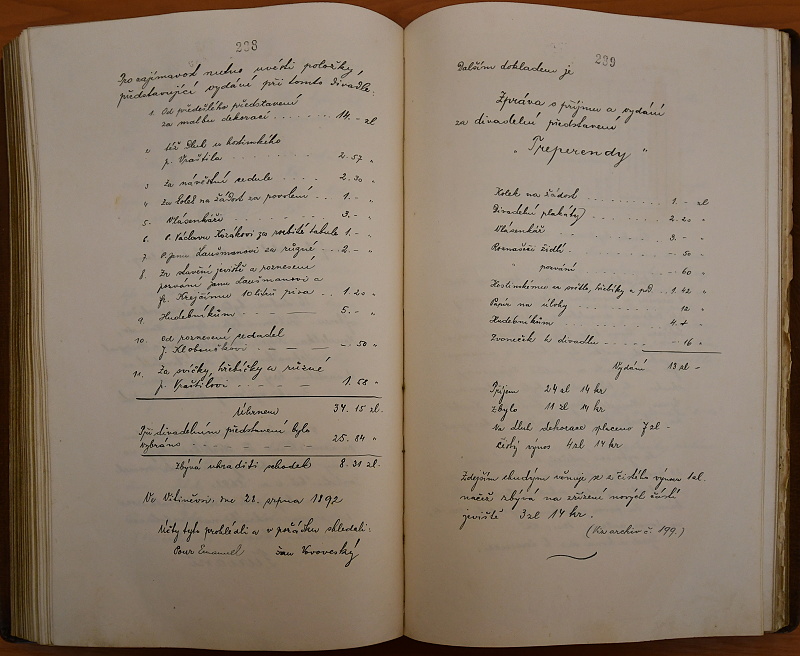 238
Pro zajímavost nutno uvésti položky,
představující vydání při tomto divadle:
1. Od předešlého představení
za malbu dekorací . . . . . . . . 14.- zl
2. též dluh u hostinského
p. Vraštila . . . . . . . . . 2.57 "
3. Za návěstní cedule . . . . 2.30 "
4. Za kolek na žádost za povolení . . 1.- "
5. Vlásenkáři . . . . . . 3.- "
6. P. Václavu Kozákovi za rozbité tabule 1.- "
7. P. Janu Laušmanovi za různé . . . 2.- "
8. Za stavění jeviště a roznesení
pozvání Janu Laušmanovi a
fr. Krejčímu 10 litrů piva . . . 1.20 "
9. Hudebníkům . . 5.- "
10. Od roznesení sedadel
J. Klobouškovi - .50 "
11. Za svíčky, hřebíčky a různé
p. Vraštilovi 1.58 "
Úhrnem 34.15 zl.
Při divadelním představení bylo
vybráno 25.84 "
Zbývá uhraditi schodek 8.31 zl.
Ve Vitiněvsi, dne 28. srpna 1892
Účty tyto prohlédli a v pořádku shledali:
Pour Emanuel Jan Vovoveský
239
Dalším dokladem je
Zpráva o příjmu a vydání
za divadelní představení
" Treperendy "
Kolek na žádost . . . . . . 1.- zl
Divadelní plakáty . . . . . 2.20 "
Vlásenkář . . . . . . 3.- "
Roznašeči židlí . . . . . -.50 "
" pozvání . . . . . -.60 "
Hostinskému za světlo, hřebíky a pod. . 1.42 "
Papír na úlohy . . . . . 12 "
Hudebníkům . . . . . 4.+ "
Zvoneček k divadlu . . . . . - 16 "
Vydání 13 zl -
Příjem 24 zl 14 kr
zbylo 11 zl 14 kr
Na dluh dekorace placeno 7 zl -
čistý výnos 4 zl 14 kr
Zdejším chudým věnuje se z čistého výnosu 1 zl.
načež zbývá na zřízení nových částí
jeviště 3 zl 14 kr.
(Ku archiv č. 199.)